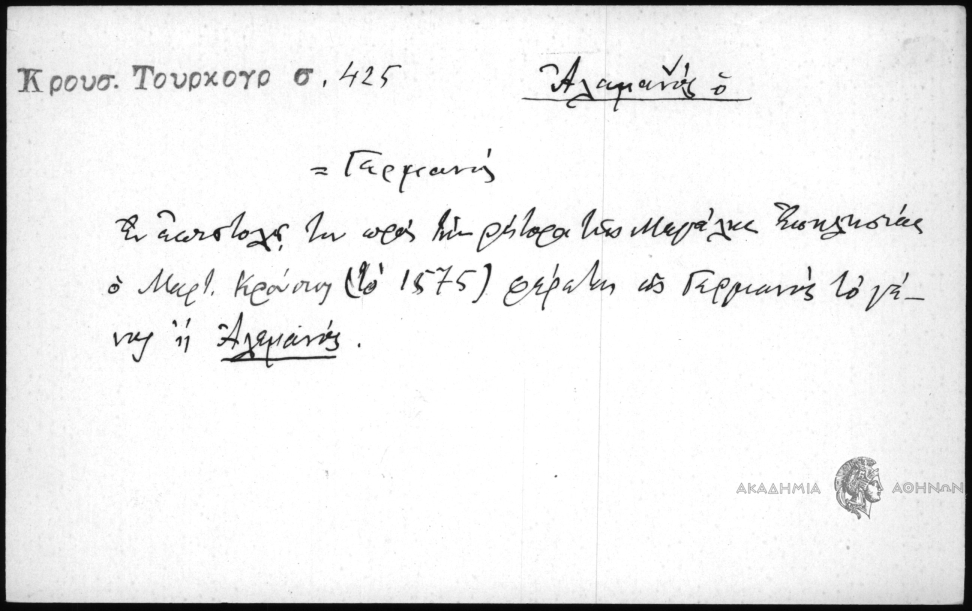 Κρουσ. Τουρκογρ σ. 425
Ἀλαμανός ὁ
= Γερμανός
Ἐν ἐπιστολῇ του πρός τόν ρήτορα τῆς Μεγάλης Ἐκκλησίας
ὁ Μαρτ. Κρούσιος (τό 1575) φέρεται ὡς Γερμανός τό γέ-
νος ἤ Ἀλαμανός.
ΑΚΑΔΗΜΙΑ ΑΘΗΝΩΝ